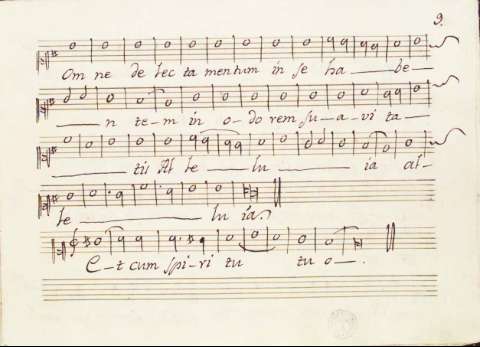 9.
Om ne de lec ta mentum in se ha be
n te m in o do rem su a vi ta
tis Al le lu ia al
le lu ia.
E t cum spi ri tu tu o.